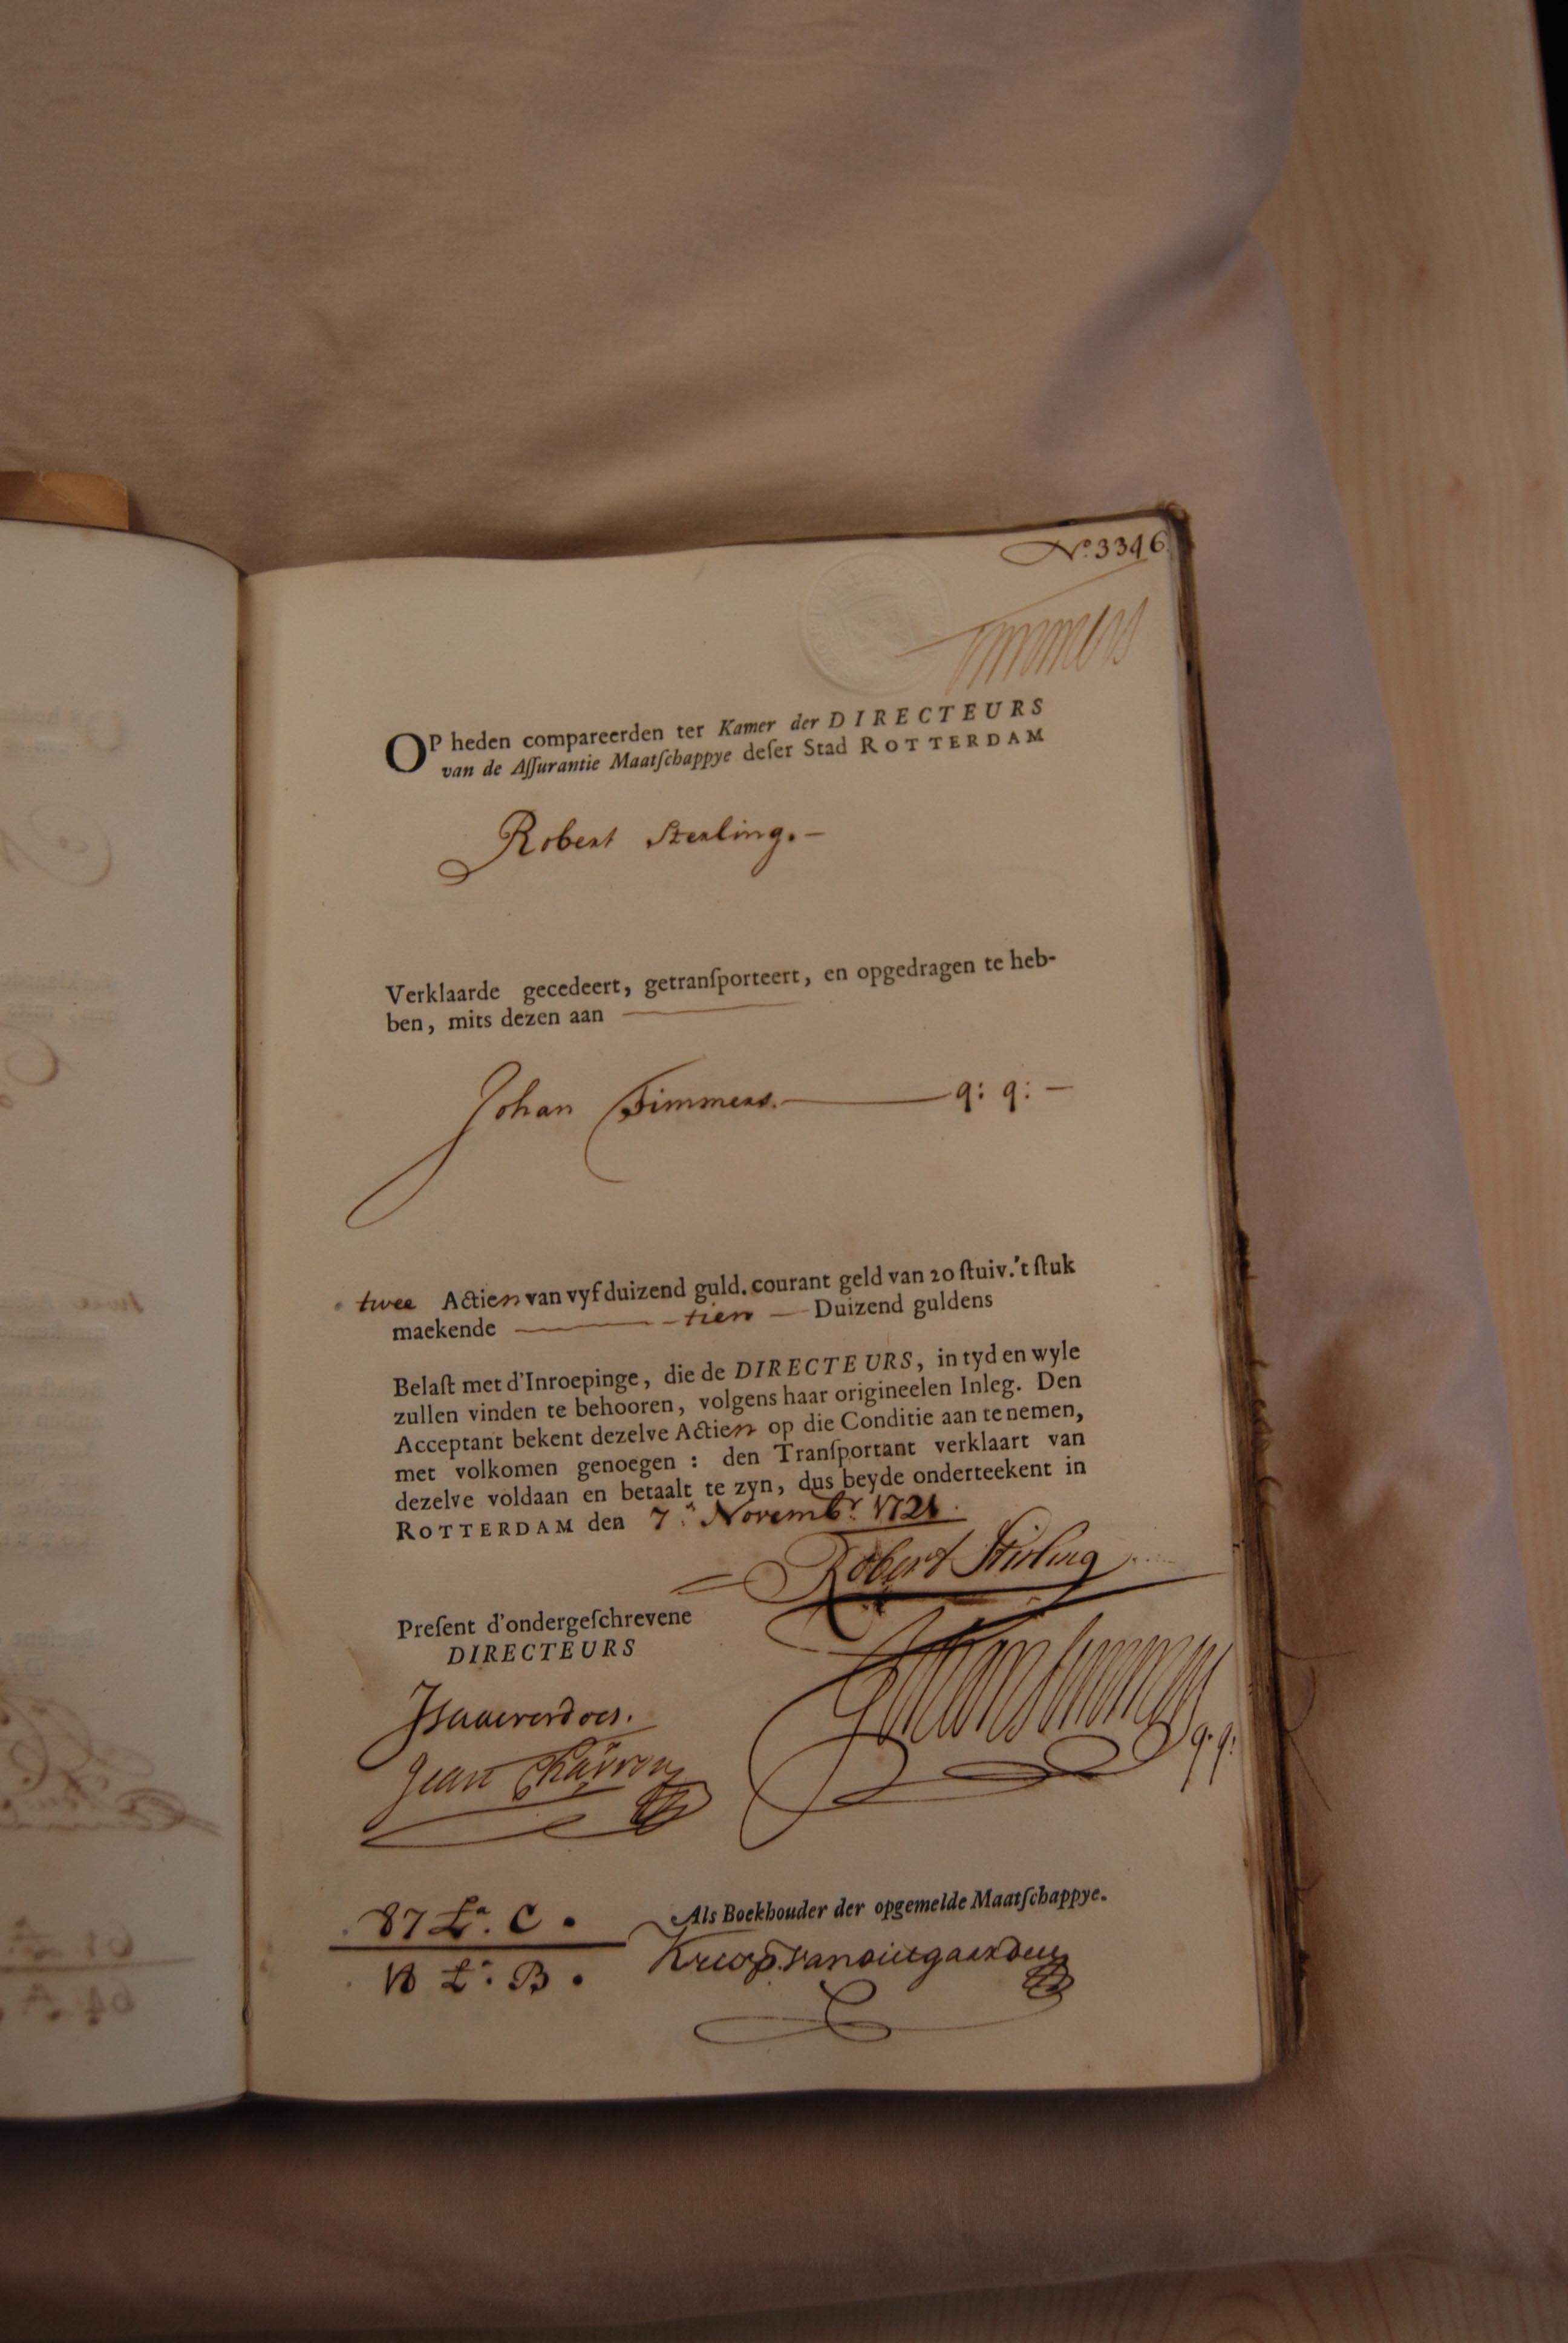 No. 3346
Timmers
OP heden compareerden ter Kamer der DIRECTEURS
van de Aſſurantie Maatſchappye deſer Stad ROTTERDAM
Robert Sterling. –
Verklaarde gecedeert, getranſporteert, en opgedragen te heb-
ben, mits dezen aan
Johan Timmers. — q: q: –
twee Actien van vyf duizend guld. courant geld van 20 ſtuiv. 't ſtuk
maekende — tien — Duizend guldens
Belaſt met d'Inroepinge, die de DIRECTEURS, in tyd en wyle
zullen vinden te behooren, volgens haar origineelen Inleg. Den
Acceptant bekent dezelve Actien op die Conditie aan te nemen,
met volkomen genoegen : den Tranſportant verklaart van
dezelve voldaan en betaalt te zyn, dus beyde onderteekent in
ROTTERDAM den 7: Novembr. 1721.
Robert Stirling
Preſent d'ondergeſchrevene
DIRECTEURS
Johan Timmers q. q:
Jean
87 La. C.
18 La. B.
Als Boekhouder der opgemelde Maatſchappye.